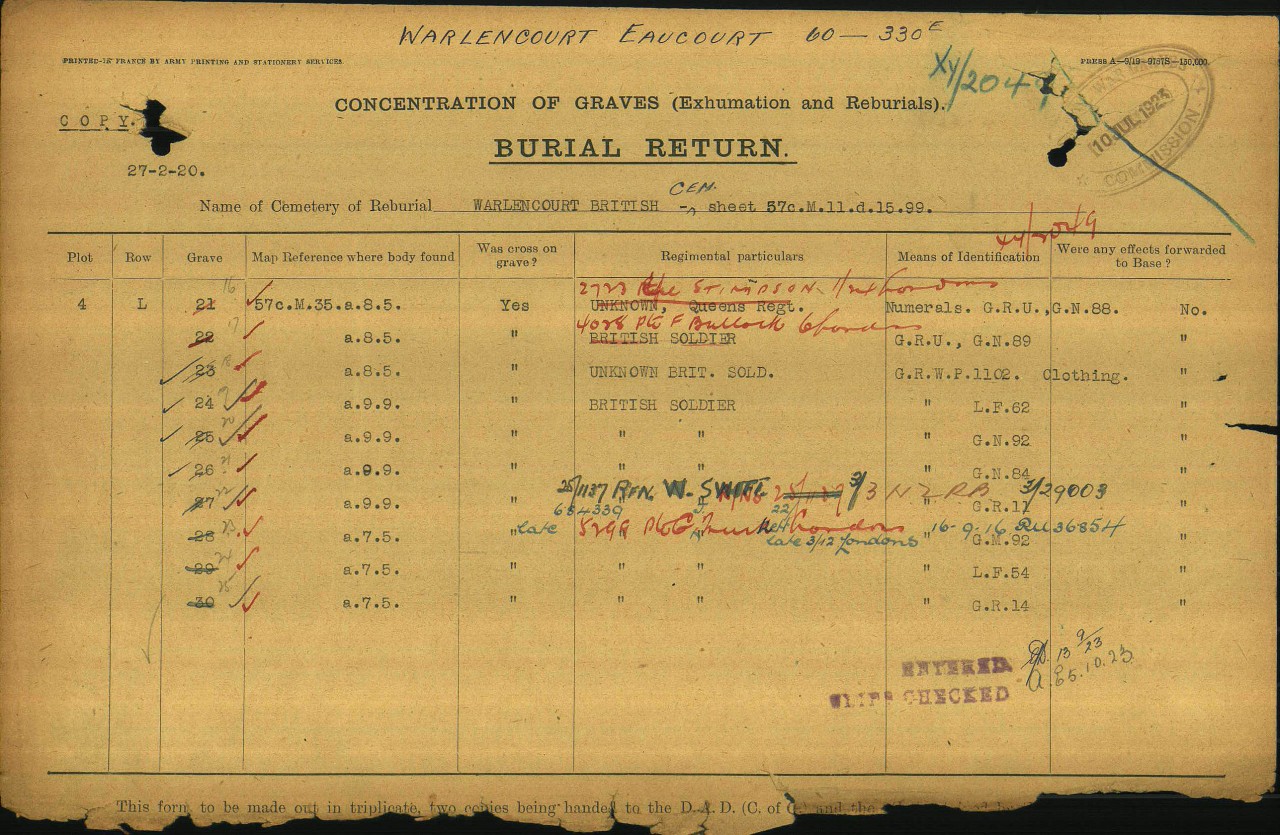 WARLENCOURT EAUCOURT 60 — 330E
PRINTED IN FRANCE BY ARMY PRINTING AND STATIONERY SERVICES.
PRESS A—9/19—9787S—150,000.
XY/2049
CONCENTRATION OF GRAVES (Exhumation and Reburials).
COPY.
BURIAL RETURN.
WAR GRAVES COMMISSION
10 JUL 1923
27-2-20.
CEM.
Name of Cemetery of Reburial WARLENCOURT BRITISH - sheet 57c.M.11.d.15.99.
XY/2049
Plot Row Grave Map Reference where body found Was cross on grave? Regimental particulars Means of Identification Were any effects forwarded to Base?
16 2723 Rfn STIMPSON
4 L 21 57c.M.35.a.8.5. Yes UNKNOWN, Queens Regt. Numerals. G.R.U.,G.N.88. No.
17 4028 Pte F Bullock 6 Londons
22 a.8.5. " BRITISH SOLDIER G.R.U., G.N.89 "
23 a.8.5. " UNKNOWN BRIT. SOLD. G.R.W.P.1102. Clothing. "
24 a.9.9. " BRITISH SOLDIER " L.F.62 "
25 20 a.9.9. " " " " G.N.92 "
26 21 a.9.9. " " " " G.N.84 "
25/1137 RFN. W. SWIFT 3/3 NZRB 3/29003
27 22 a.9.9. " " " " G.R.11 "
654339 22/
late 5299 Pte C Londons 16-9-16 RU36854
28 23 a.7.5. " " " " G.M.92 "
late 3/12 Londons
29 24 a.7.5. " " " " L.F.54 "
30 25 a.7.5. " " " " G.R.14 "
ENTERED 13 9/23
CHECKED 5.10.23.
This form to be made out in triplicate, two copies being handed to the D.A.D. (C. of G.) and the